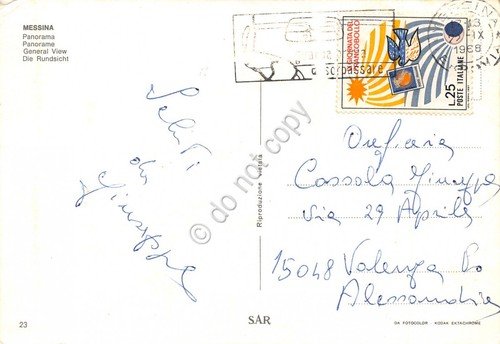 MESSINA
Panorama
Panorame
General View
Die Rundsicht
Saluti
da
Giuseppe
Riproduzione vietata
23
SAR
GIORNATA DEL
FRANCOBOLLO
L.25 POSTE ITALIANE
sorpassare
13
IX
Oreficeria
Cassola Giuseppe
Via 29 Aprile
15048 Valenza Po
Alessandria
DA FOTOCOLOR KODAK EKTACHROME
do not copy